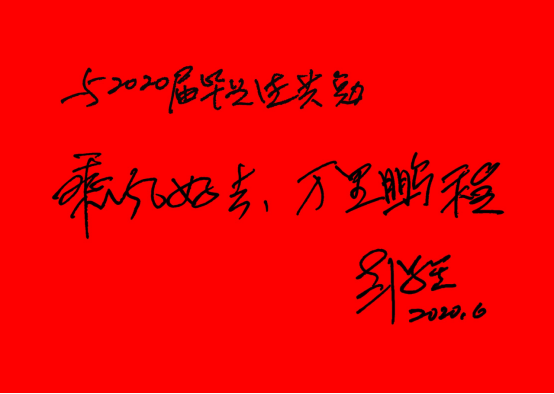 与2020届毕业生共勉
乘风好去、万里鹏程
2020.6